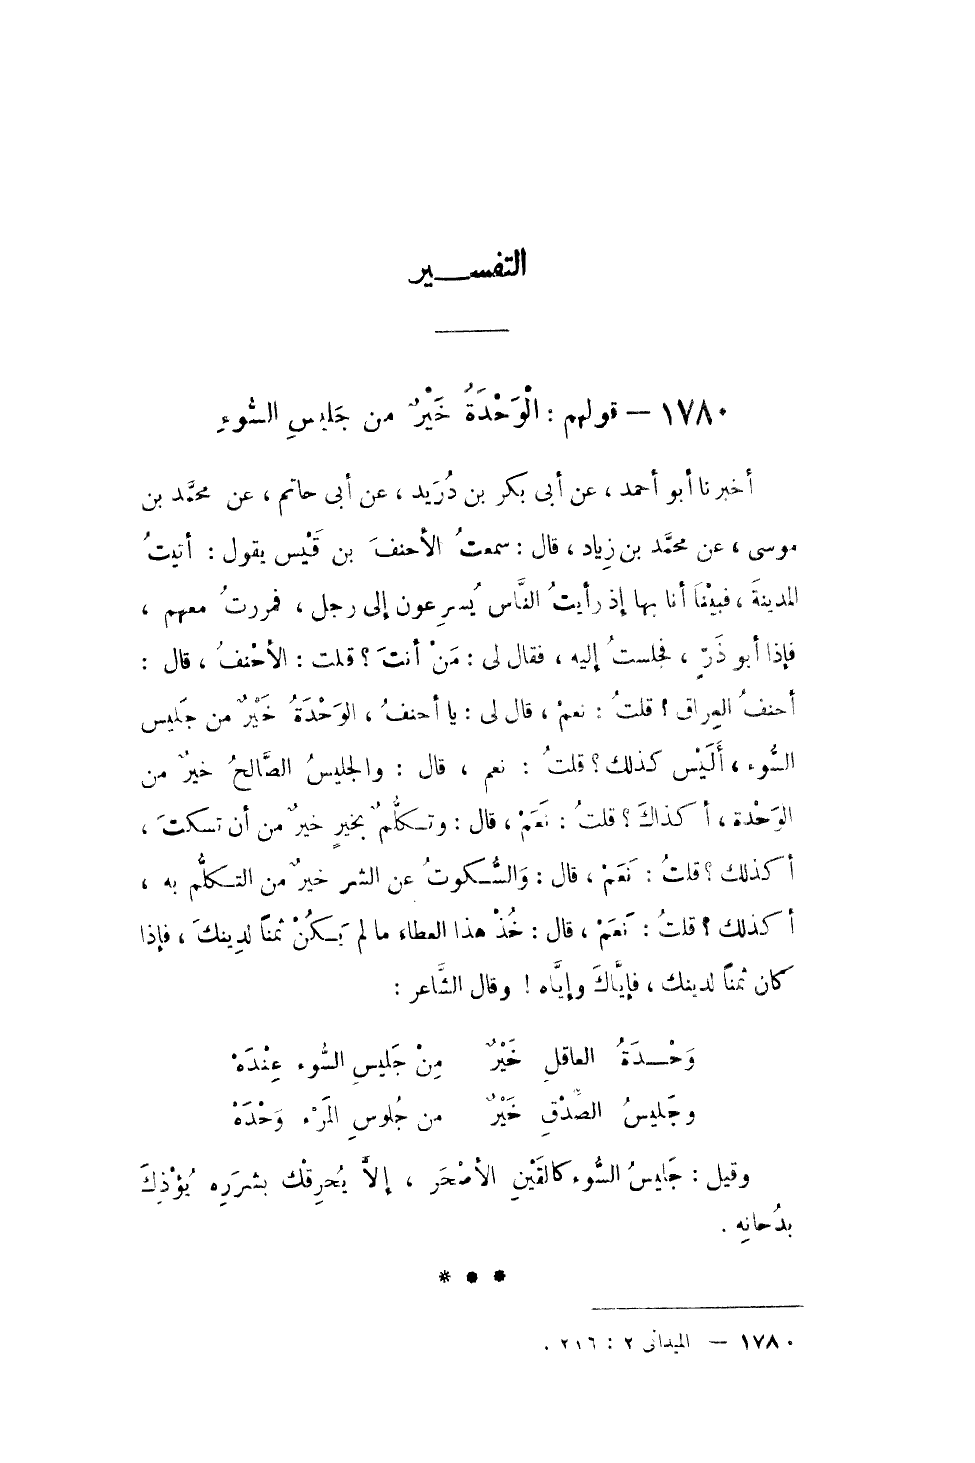 التفسـير
١٧٨٠ – قولهم : الْوَحْدَةُ خَيْرٌ من جَلِيسِ السُّوءِ
أخبرنا أبو أحمد ، عن أبى بكر بن دُرَيد ، عن أبى حاتم ، عن محمَّد بن
موسى ، عن محمَّد بن زِياد ، قال : سمعتُ الأحنفَ بن قَيْس يقول : أتيتُ
المدينةَ ، فبيْنَا أنا بها إذ رأيتُ النَّاس يُسرِعون إلى رجل ، فمررتُ معهم ،
فإذا أبو ذَرٍّ ، فجلستُ إليه ، فقال لى : مَنْ أنتَ ؟ قلت : الأحْنفُ ، قال :
أحنفُ العِراق ؟ قلتُ : نعمْ ، قال لى : يا أحنفُ ، الوَحْدَةُ خَيْرٌ من جَليس
السُّوء ، أَلَيْس كذلك ؟ قلتُ : نعم ، قال : والجليسُ الصَّالحُ خيرٌ من
الوَحْدة ، أكذاكَ ؟ قلتُ : نَعَمْ ، قال : وتـكلُّمٌ بخيرٍ خيرٌ من أن تسكتَ ،
أكذلك ؟ قلتُ : نَعَمْ ، قال : وَالسُّـكوتُ عن الشر خيرٌ من التـكلُّم به ،
أكذلك ؟ قلتُ : نَعَمْ ، قال : خُذْ هذا العطاء ما لم يَـكُنْ ثمنًا لدِينكَ ، فإذا
كان ثمنًا لدينك ، فإيَّاكَ وإيَّاه ! وقال الشَّاعر :
وَحْـــدَةُ العاقلِ خَيْرٌ مِنْ جَليسِ السُّوء عِنْدَهْ
وجَليسُ الصِّدْقِ خَيْرٌ من جُلوسِ المَرْء وَحْدَهْ
وقيل : جَليسُ السُّوء كالقَيْنِ الأصْحَر ، إلاَّ يُحرِقْك بشررَِه يُؤْذِكَ
بدُخانِه .
* * *
١٧٨٠ – الميدانى ٢ : ٢١٦ .